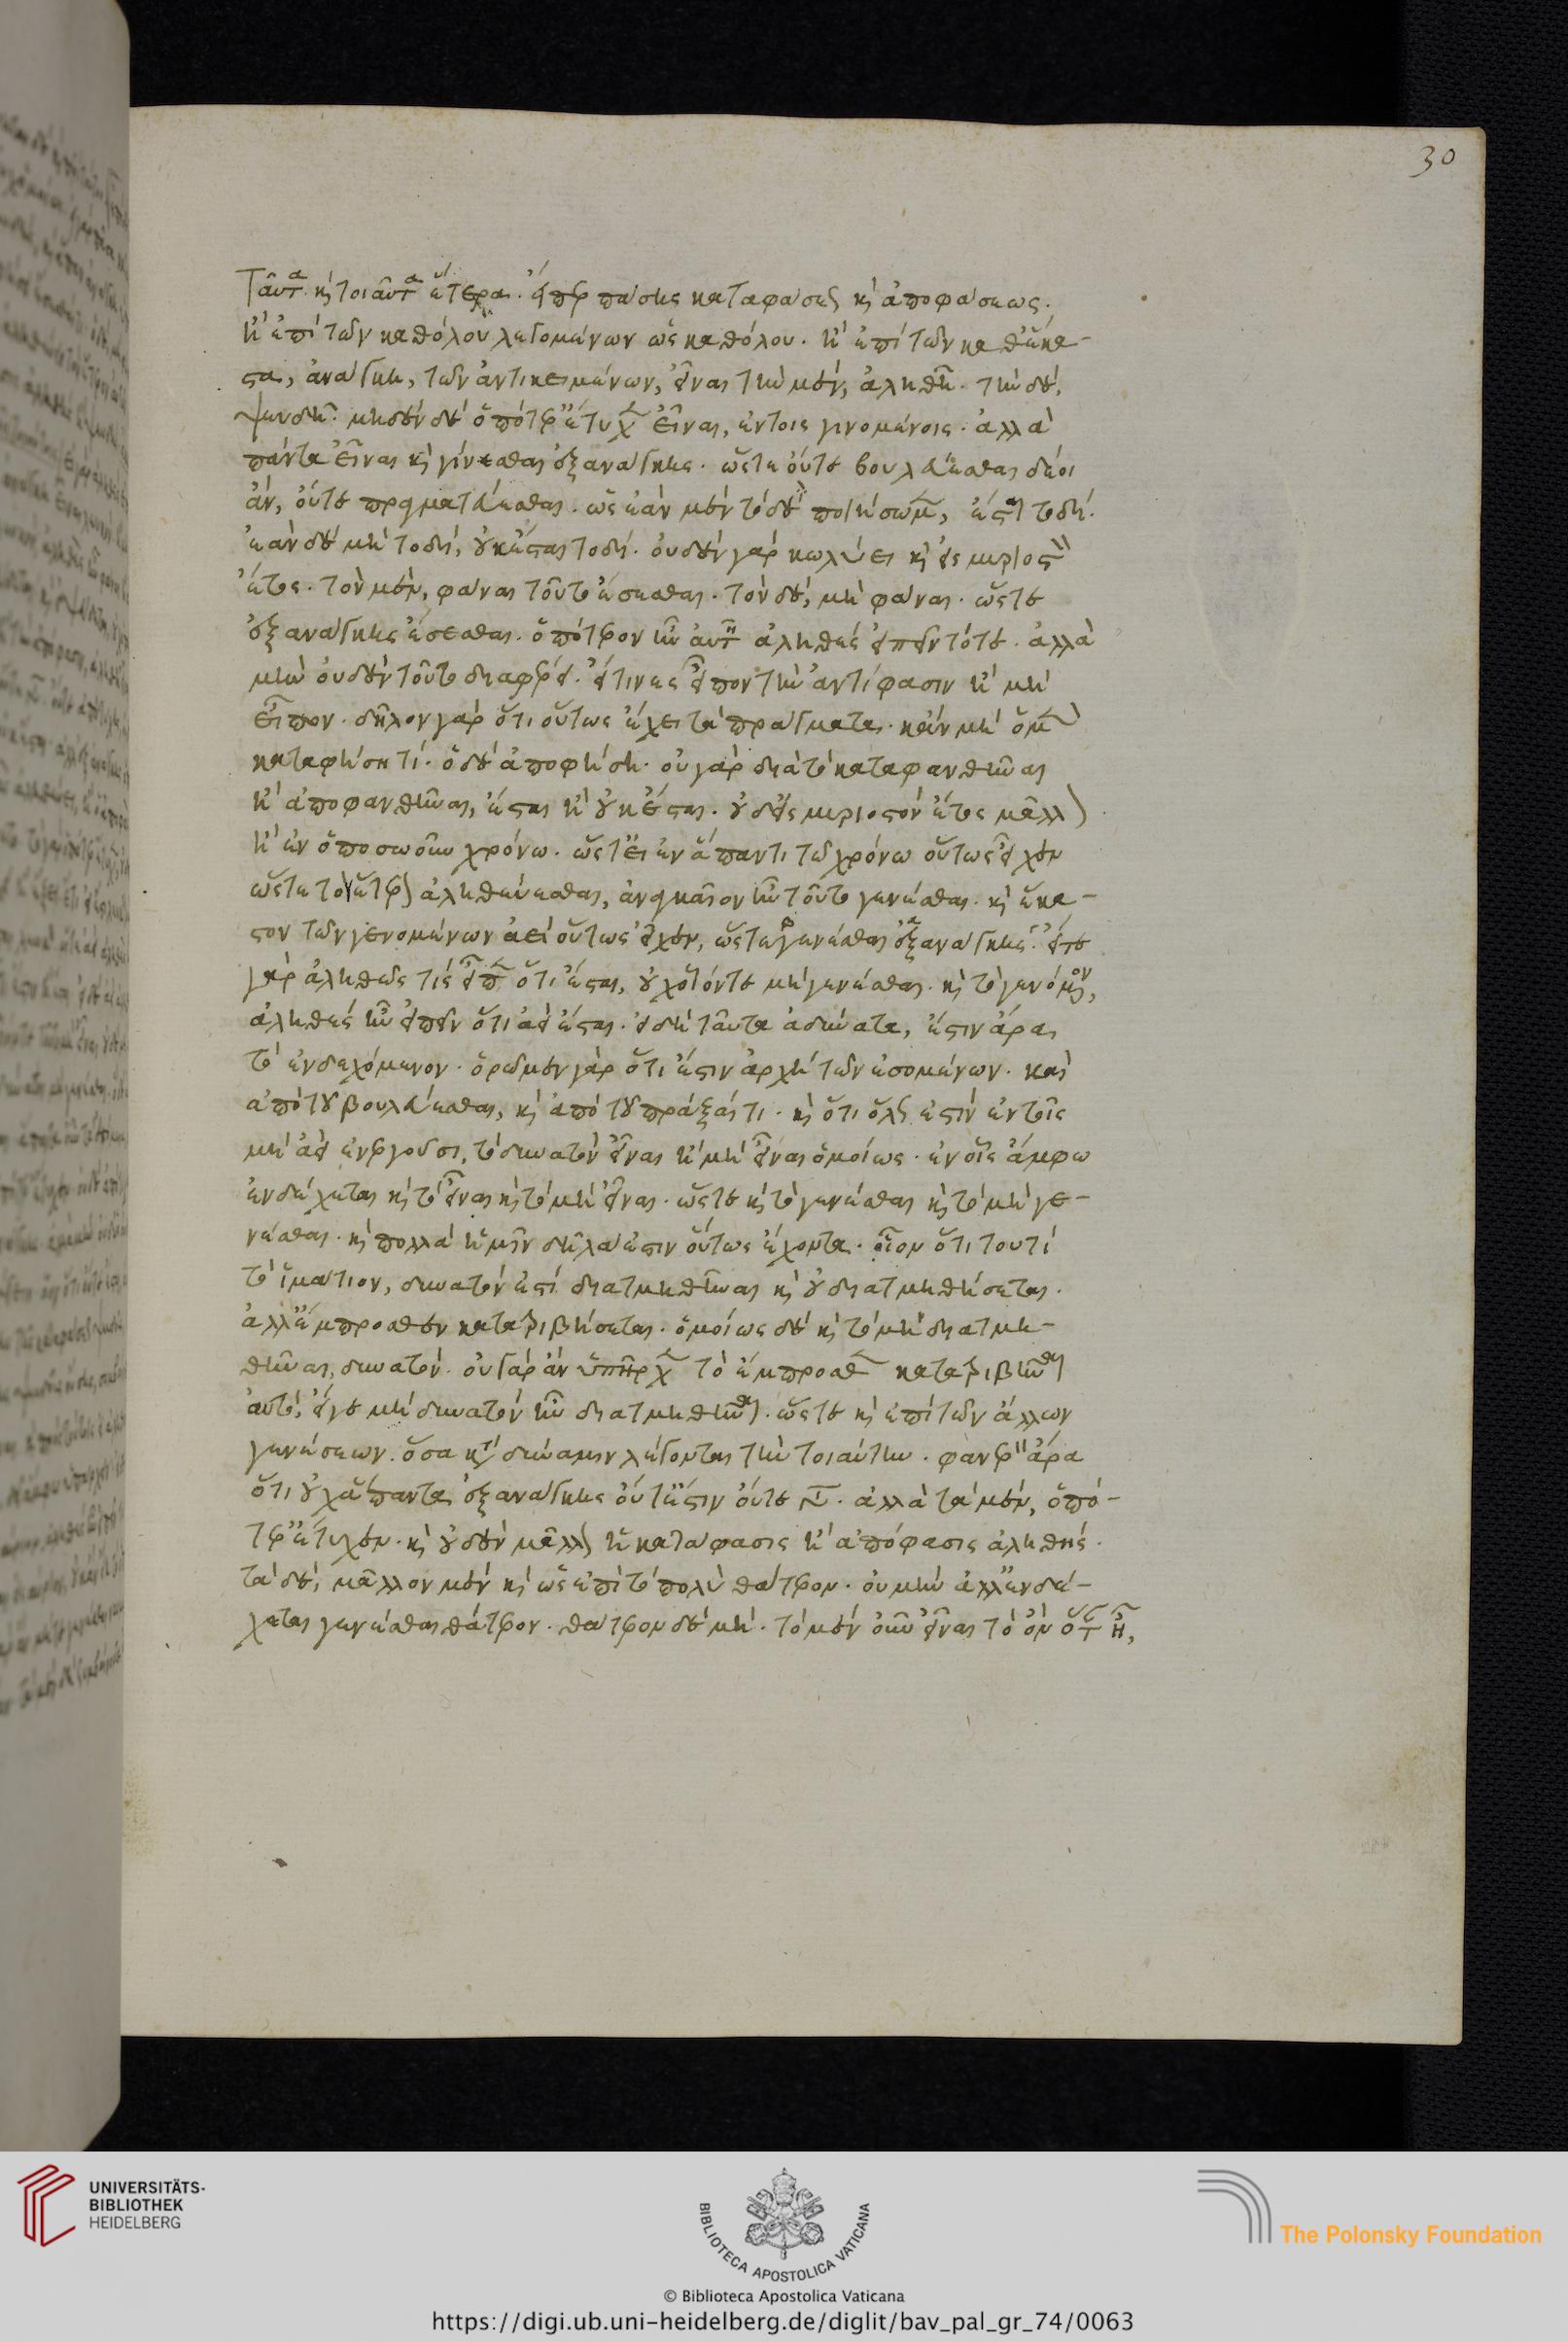 Ταῦτα καὶ τοιαῦτα ἕτερα. εἴπερ πάσης καταφάσεως καὶ ἀποφάσεως.
ἢ ἐπὶ τῶν καθόλου λεγομένων ὡς καθόλου. ἢ ἐπὶ τῶν καθέκα-
στα, ἀνάγκη, τῶν ἀντικειμένων, εἶναι τὴν μὲν, ἀληθῆ. τὴν δὲ,
ψευδῆ. μηδὲν δὲ ὁπότερ' ἔτυχεν εἶναι, ἐν τοῖς γινομένοις. ἀλλὰ
πάντα εἶναι καὶ γίνεσθαι ἐξ ἀνάγκης. ὥστε οὔτε βουλεύεσθαι δέοι
ἂν, οὔτε πραγματεύεσθαι. ὡς ἐὰν μὲν τόδε ποιήσωμεν, ἔσται τοδί.
ἐὰν δὲ μὴ τοδί, οὐκ ἔσται τοδί. οὐδὲν γὰρ κωλύει καὶ εἰς μυριοστὸν
ἔτος. τὸν μὲν, φάναι τοῦτο ἔσεσθαι. τὸν δὲ, μὴ φάναι. ὥστε
ἐξ ἀνάγκης ἔσεσθαι. ὁπότερον ἦν αὐτῶν ἀληθὲς εἰπεῖν τότε. ἀλλὰ
μὴν οὐδὲν τοῦτο διαφέρει. εἴ τινες εἶπον τὴν ἀντίφασιν ἢ μὴ
εἶπον. δῆλον γὰρ ὅτι οὕτως ἔχει τὰ πράγματα. κἂν μὴ ὁ μὲν
καταφήσῃ τί. ὁ δὲ ἀποφήσῃ. οὐ γὰρ διὰ τὸ καταφανθῆναι
ἢ ἀποφανθῆναι, ἔσται ἢ οὐκ ἔσται. οὐδ' εἰς μυριοστὸν ἔτος μᾶλλον
ἢ ἐν ὁποσωοῦν χρόνω. ὥστ' εἰ ἐν ἅπαντι τῶ χρόνω οὕτως εἶχεν
ὥστε τὸ ἕτερον ἀληθεύεσθαι, ἀναγκαῖον ἦν τοῦτο γενέσθαι. καὶ ἕκα-
στον τῶν γενομένων ἀεὶ οὕτως εἶχεν, ὥστε γενέσθαι ἐξ ἀνάγκης. ὅτε
γὰρ ἀληθῶς τὶς εἶπεν ὅτι ἔσται, οὐχ οἷόν τε μὴ γενέσθαι. καὶ τὸ γενόμενον,
ἀληθὲς ἦν εἰπεῖν ὅτι ἀεὶ ἔσται. εἰ δὴ ταῦτα ἀδύνατα, ἔστιν ἄρα
τὸ ἐνδεχόμενον. ὁρῶμεν γὰρ ὅτι ἔστιν ἀρχὴ τῶν ἐσομένων. καὶ
ἀπὸ τοῦ βουλεύεσθαι, καὶ ἀπὸ τοῦ πρᾶξαί τι. καὶ ὅτι ὅλως ἐστὶν ἐν τοῖς
μὴ ἀεὶ ἐνεργοῦσι, τὸ δυνατὸν εἶναι ἢ μὴ εἶναι ὁμοίως. ἐν οἷς ἄμφω
ἐνδέχεται καὶ τὸ εἶναι καὶ τὸ μὴ εἶναι. ὥστε καὶ τὸ γενέσθαι καὶ τὸ μὴ γε-
νέσθαι. καὶ πολλὰ ἡμῖν δῆλα ἐστιν οὕτως ἔχοντα. οἷον ὅτι τουτὶ
τὸ ἱμάτιον, δυνατόν ἐστι διατμηθῆναι καὶ οὐ διατμηθήσεται.
ἀλλ' ἔμπροσθεν κατατριβήσεται. ὁμοίως δὲ καὶ τὸ μὴ διατμη-
θῆναι, δυνατόν. οὐ γὰρ ἂν ὑπῆρχε τὸ ἔμπροσθεν κατατριβῆναι
αὐτὸ, εἴγε μὴ δυνατὸν ἦν διατμηθῆναι. ὥστε καὶ ἐπὶ τῶν ἄλλων
γενέσεων. ὅσα κατὰ δύναμιν λέγονται τὴν τοιαύτην. φανερὸν ἄρα
ὅτι οὐχ ἅπαντα ἐξ ἀνάγκης οὔτ' ἔστιν οὔτε γίνεται. ἀλλὰ τὰ μὲν, ὁπό-
τερ' ἔτυχεν. καὶ οὐδὲν μᾶλλον ἡ κατάφασις ἢ ἀπόφασις ἀληθής.
τὰ δὲ, μᾶλλον μὲν καὶ ὡς ἐπὶ τὸ πολὺ θάτερον. οὐ μὴν ἀλλ' ἐνδέ-
χεται γενέσθαι θάτερον. θάτερον δὲ μή. τὸ μὲν οὖν εἶναι τὸ ὂν ὅταν ἦ,
30
UNIVERSITÄTS-
BIBLIOTHEK
HEIDELBERG
BIBLIOTECA APOSTOLICA VATICANA
The Polonsky Foundation
© Biblioteca Apostolica Vaticana
https://digi.ub.uni-heidelberg.de/diglit/bav_pal_gr_74/0063